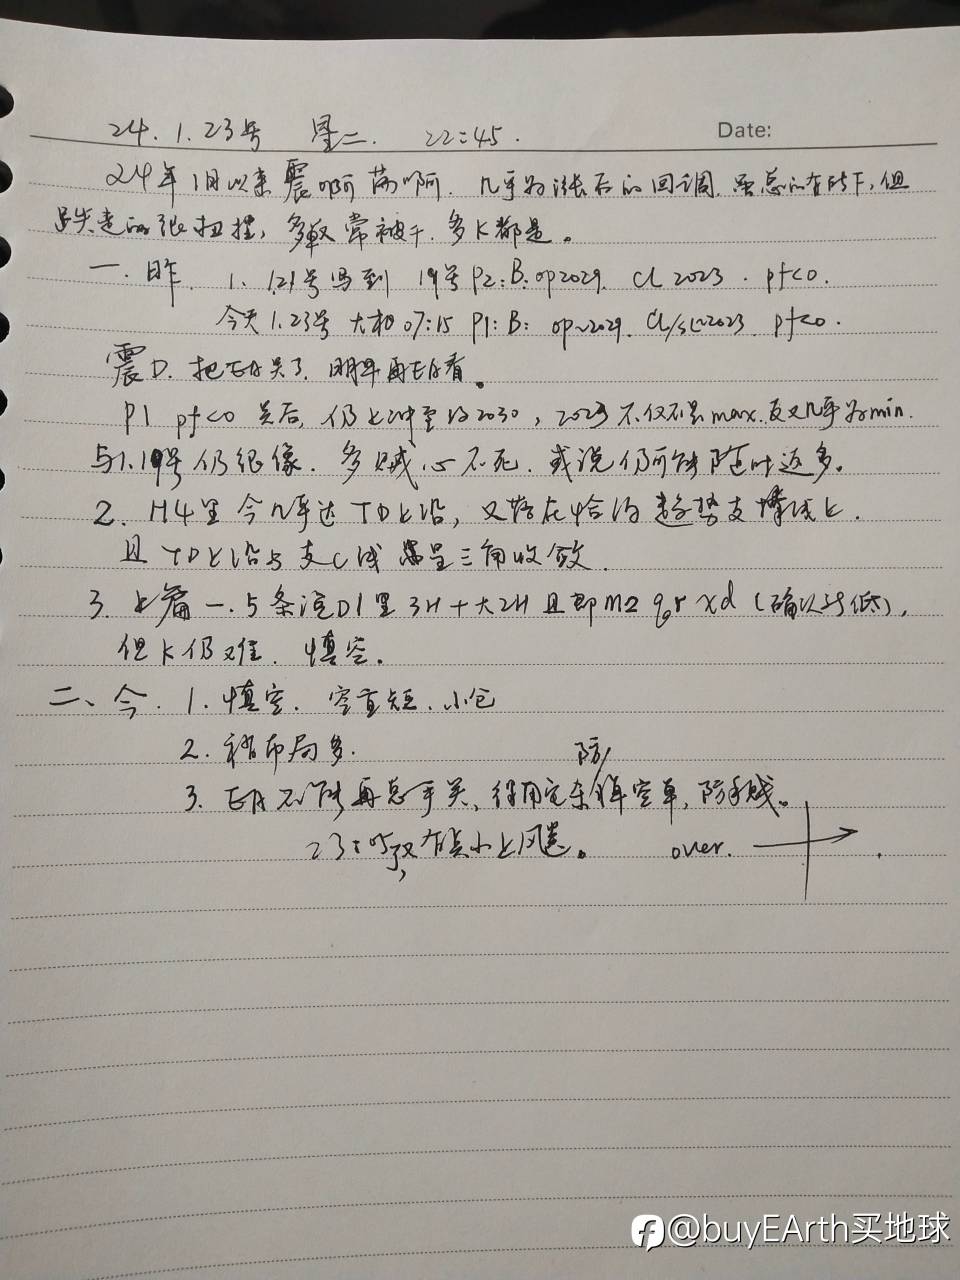 24.1.23号 星二. 22:45.
Date:
24年1月以来震啊荡啊. 几乎为涨后的回调. 虽总的在跌下, 但
走的很扭捏, 多数常被干. 多K都是。
一. 昨 1. 1.21号写到 19号 P2: B: op2029. CL 2023. pf<0.
今天1.23号 大概07:15 P1: B: op~2029. CL/SL~2023 pf<0.
震D. 把EA关了. 明早再EA看。
P1 pf<0 关后, 仍上冲至约2030, 2023不仅不是max. 反又几乎为min.
与1.19号仍很像. 多贼心不死. 或说仍可能随时返多。
2. H4里今几乎达TD上沿, 又落在恰约趋势支撑线上.
且TD上沿与支C线 呈三角收敛.
3. 上篇一.5条说D1里3H+大2H且即M2 xd (确认与低),
但K仍难. 慎空.
二、今. 1. 慎空. 空宜短. 小仓
2. 稍布局多.
防
3. EA不能再总手关, 得用它来锁单空单, 防多贱。
23:05了, 又有点小上风意。 over.
@buyEArth买地球